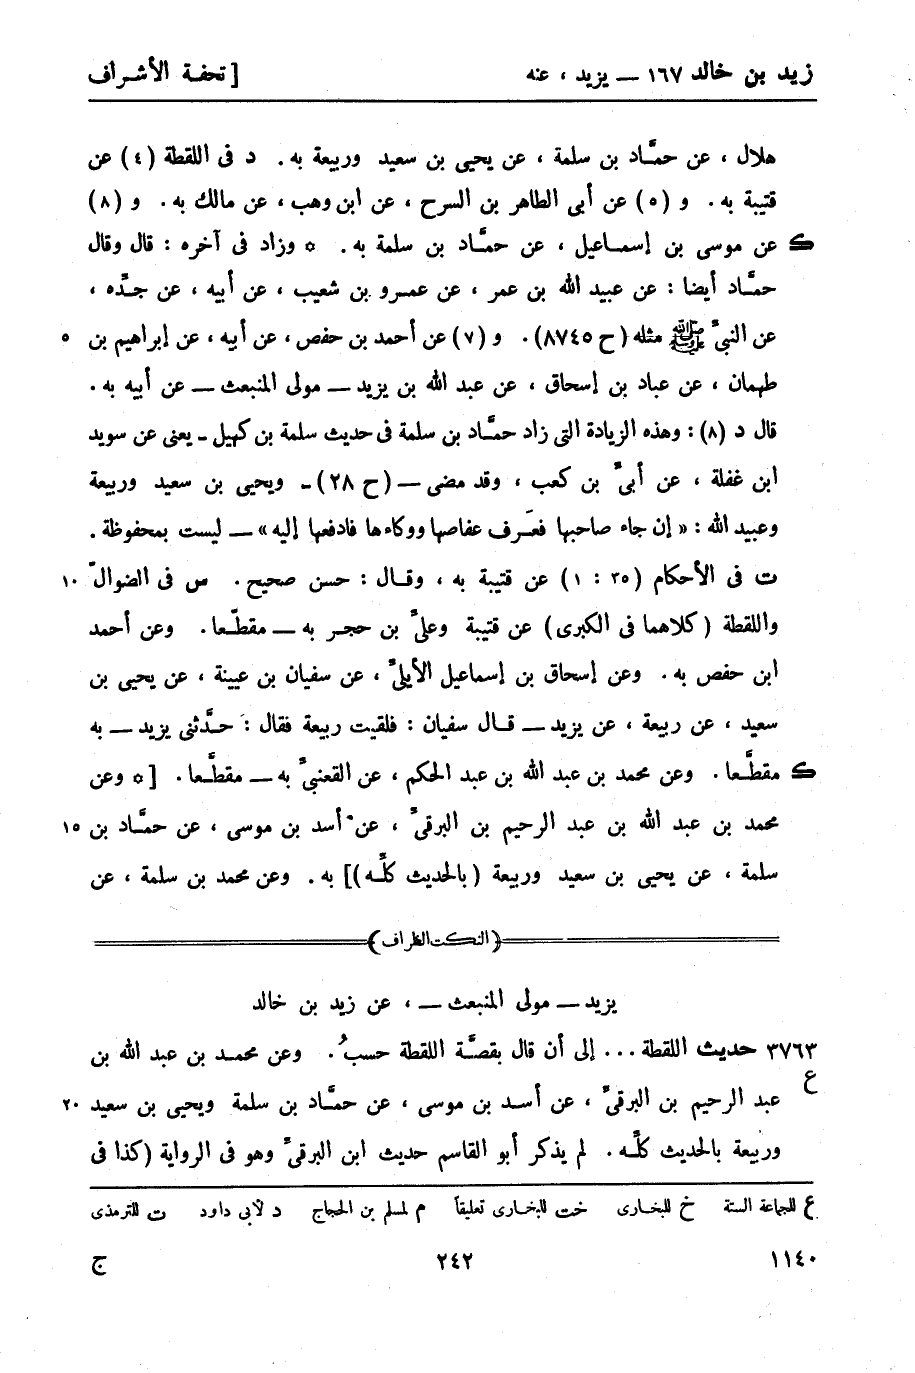 زيد بن خالد ١٦٧ — يزيد ، عنه [ تحفة الأشراف
هلال ، عن حمَّاد بن سلمة ، عن يحيى بن سعيد وربيعة به. د فى اللقطة (٤) عن
قتيبة به. و (٥) عن أبى الطاهر بن السرح ، عن ابن وهب ، عن مالك به. و (٨)
ك عن موسى بن إسماعيل ، عن حمَّاد بن سلمة به. * وزاد فى آخره : قال وقال
حمَّاد أيضا : عن عبيد الله بن عمر ، عن عمرو بن شعيب ، عن أبيه ، عن جدّه ،
عن النبىّ ﷺ مثله (ح ٨٧٤٥). و (٧) عن أحمد بن حفص ، عن أبيه ، عن إبراهيم بن ٥
طهمان ، عن عباد بن إسحاق ، عن عبد الله بن يزيد — مولى المنبعث — عن أبيه به.
قال د (٨) : وهذه الزيادة التى زاد حمَّاد بن سلمة فى حديث سلمة بن كهيل - يعنى عن سويد
ابن غفلة ، عن أبىّ بن كعب ، وقد مضى — (ح ٢٨) - ويحيى بن سعيد وربيعة
وعبيد الله : « إن جاء صاحبها فعَرف عفاصها ووكاءها فادفعها إليه » — ليست بمحفوظة.
ت فى الأحكام (٣٥ : ١) عن قتيبة به ، وقال : حسن صحيح. س فى الضوالّ ١٠
واللقطة (كلاهما فى الكبرى) عن قتيبة وعلىّ بن حجر به — مقطّعا. وعن أحمد
ابن حفص به. وعن إسحاق بن إسماعيل الأيلىّ ، عن سفيان بن عيينة ، عن يحيى بن
سعيد ، عن ربيعة ، عن يزيد — قال سفيان : فلقيت ربيعة فقال : حدَّثنى يزيد — به
ك مقطَّعا. وعن محمد بن عبد الله بن عبد الحكم ، عن القعنبىّ به — مقطَّعا. [* وعن
محمد بن عبد الله بن عبد الرحيم بن البرقىّ ، عن أسد بن موسى ، عن حمَّاد بن ١٥
سلمة ، عن يحيى بن سعيد وربيعة (بالحديث كلّه)] به. وعن محمد بن سلمة ، عن
(النكت الظراف)
يزيد — مولى المنبعث — ، عن زيد بن خالد
٣٧٦٣ حديث اللقطة ... إلى أن قال بقصَّة اللقطة حسبُ. وعن محمد بن عبد الله بن
ع
عبد الرحيم بن البرقىّ ، عن أسد بن موسى ، عن حمَّاد بن سلمة ويحيى بن سعيد ٢٠
وربيعة بالحديث كلّه. لم يذكر أبو القاسم حديث ابن البرقىّ وهو فى الرواية (كذا فى
ع للجماعة الستة خ للبخارى خت للبخارى تعليقاً م لمسلم بن الحجاج د لأبى داود ت للترمذى
١١٤٠ ٢٤٢ ج